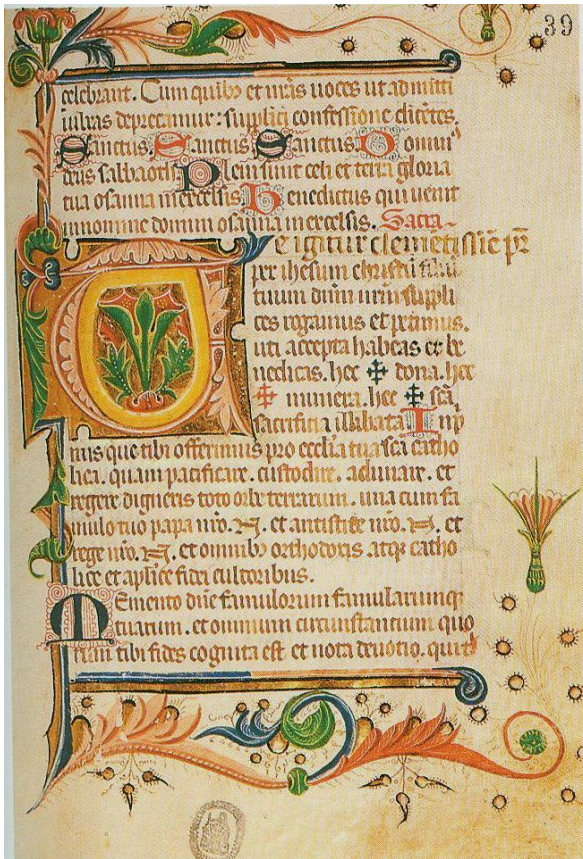 39
celebrant. Cum quib⁊ et nr̄as uoces ut admitti
iubeas deprecamur: supplici confessione dicētes.
Sanctus. Sanctus. Sanctus. Domin⁹
deus sabbaoth. Pleni sunt celi et terra gloria
tua osanna inexcelsis. Benedictus qui uenit
innomine domini osanna inexcelsis. Sacra
Te igitur clemētissīe pr̄
per ihesum christū filiū
tuum dn̄m nrm̄ suppli
ces rogamus et petimus.
uti accepta habeas et be
nedicas. hec ✠ dona. hec
✠ munera. hec ✠ scā
sacrificia illibata. Inp
mis que tibi offerimus pro ecclīa tua scā catho
lica. quam pacificare. custodire. adunare. et
regere digneris toto orbe terrarum. una cum fa
mulo tuo papa nr̄o. N. et antistite nr̄o. N. et
rege nr̄o. N. et omnib⁊ orthodoxis atq⁊ catho
lice et aplīce fidei cultoribus.
Memento dn̄e famulorum famularumq⁊
tuarum. et omnium circunstantium quo
rum tibi fides cognita est et nota deuotio. quib⁊